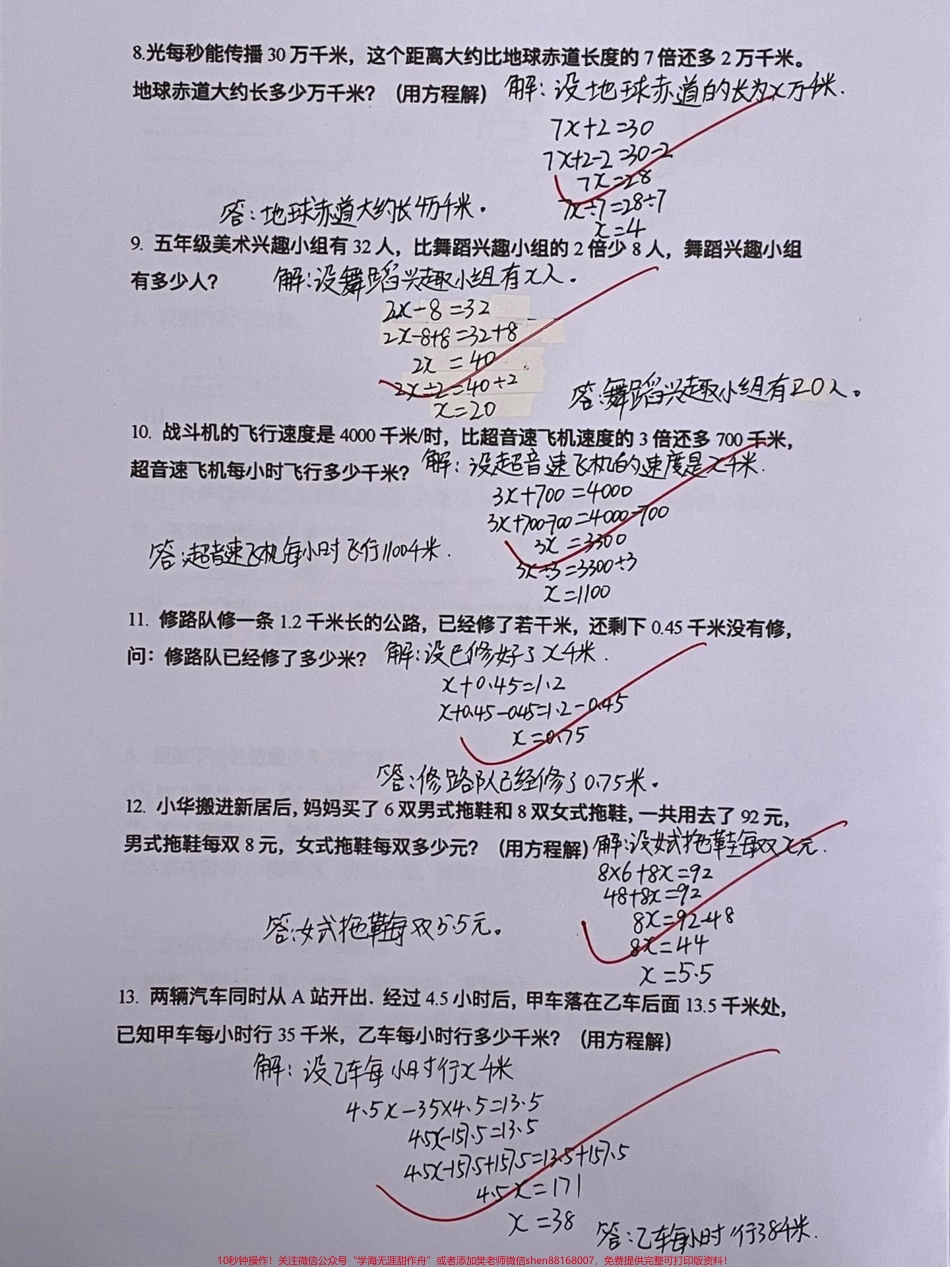 8.光每秒能传播 30 万千米，这个距离大约比地球赤道长度的 7 倍还多 2 万千米。
地球赤道大约长多少万千米？（用方程解）解：设地球赤道的长为x万千米.
7x+2=30
7x+2-2=30-2
7x=28
7x÷7=28÷7
x=4
答：地球赤道大约长4万千米。
9. 五年级美术兴趣小组有 32 人，比舞蹈兴趣小组的 2 倍少 8 人，舞蹈兴趣小组
有多少人？ 解：设舞蹈兴趣小组有x人。
2x-8=32
2x-8+8=32+8
2x=40
2x÷2=40÷2
x=20
答：舞蹈兴趣小组有20人。
10. 战斗机的飞行速度是 4000 千米/时，比超音速飞机速度的 3 倍还多 700 千米，
超音速飞机每小时飞行多少千米？ 解：设超音速飞机的速度是x千米.
3x+700=4000
3x+700-700=4000-700
3x=3300
3x÷3=3300÷3
x=1100
答：超音速飞机每小时飞行1100千米.
11. 修路队修一条 1.2 千米长的公路，已经修了若干米，还剩下 0.45 千米没有修，
问：修路队已经修了多少米？ 解：设已修好了x千米.
x+0.45=1.2
x+0.45-0.45=1.2-0.45
x=0.75
答：修路队已经修了0.75米。
12. 小华搬进新居后，妈妈买了 6 双男式拖鞋和 8 双女式拖鞋，一共用去了 92 元，
男式拖鞋每双 8 元，女式拖鞋每双多少元？（用方程解）解：设女式拖鞋每双x元.
8×6+8x=92
48+8x=92
8x=92-48
8x=44
x=5.5
答：女式拖鞋每双5.5元。
13. 两辆汽车同时从 A 站开出. 经过 4.5 小时后，甲车落在乙车后面 13.5 千米处，
已知甲车每小时行 35 千米，乙车每小时行多少千米？（用方程解）
解：设乙车每小时行x千米
4.5x-35×4.5=13.5
4.5x-157.5=13.5
4.5x-157.5+157.5=13.5+157.5
4.5x=171
x=38
答：乙车每小时行38千米.
10秒钟操作！关注微信公众号“学海无涯甜作舟”或者添加樊老师微信shen88168007，免费提供完整可打印版资料！